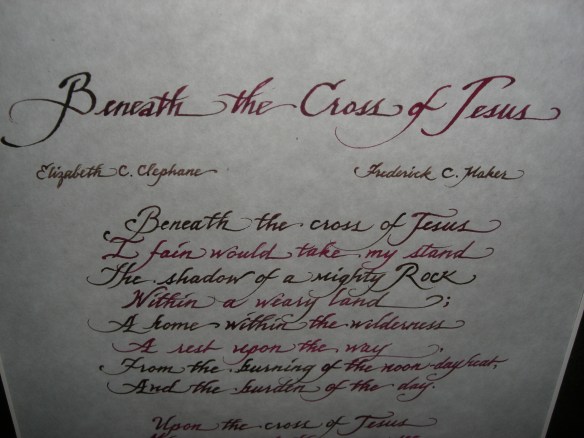 Beneath the Cross of Jesus
Elizabeth C. Clephane Frederick C. Maker
Beneath the cross of Jesus
I fain would take my stand
The shadow of a mighty Rock
Within a weary land ;
A home within the wilderness
A rest upon the way ,
From the burning of the noon-day heat,
And the burden of the day.
Upon the cross of Jesus